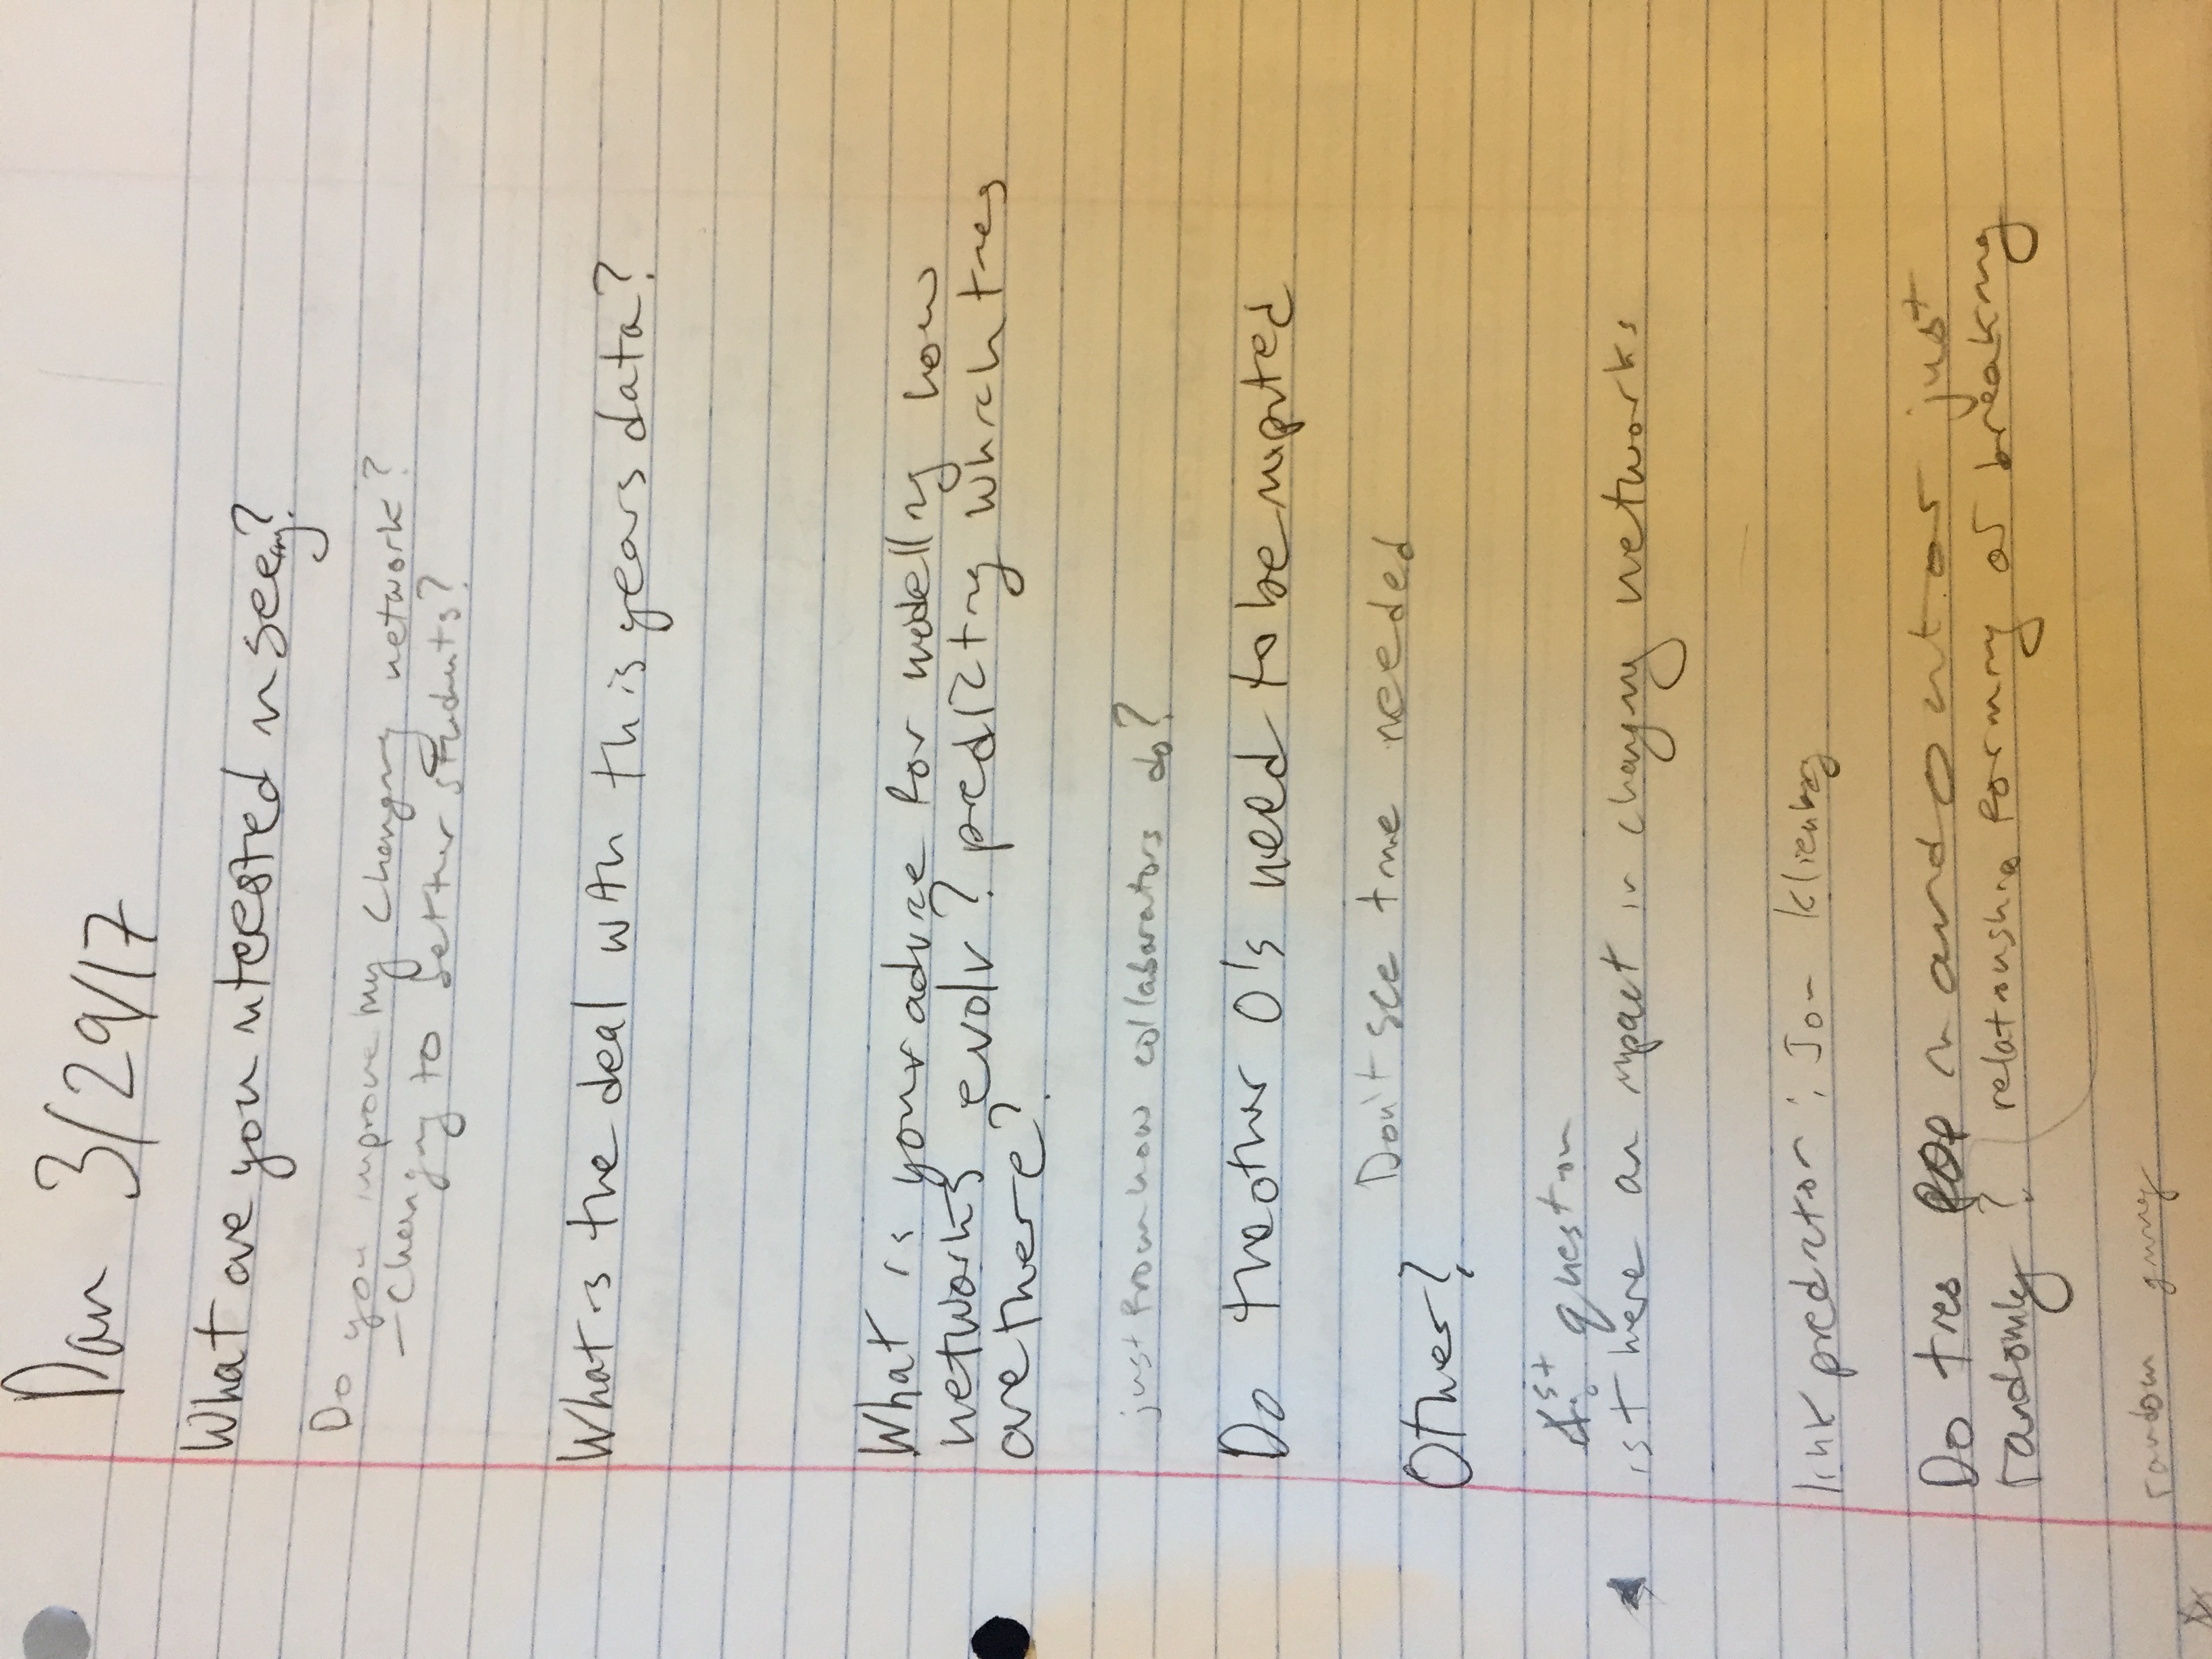 Dan 3/29/17
What are you interested in seeing?
Do you improve by changing network?
- Changing to better students?
What is the deal with this years data?
What is your advice for modelling how
networks evolv? predicting which ties
are there?
just from how collaborators do?
Do the other 0's need to be imputed
Don't see time needed
Other?
1st question
is there an impact in changing networks
link prediction: Jon Klienberg
Do ties pop in and out or just
randomly? relationship forming or breaking
random